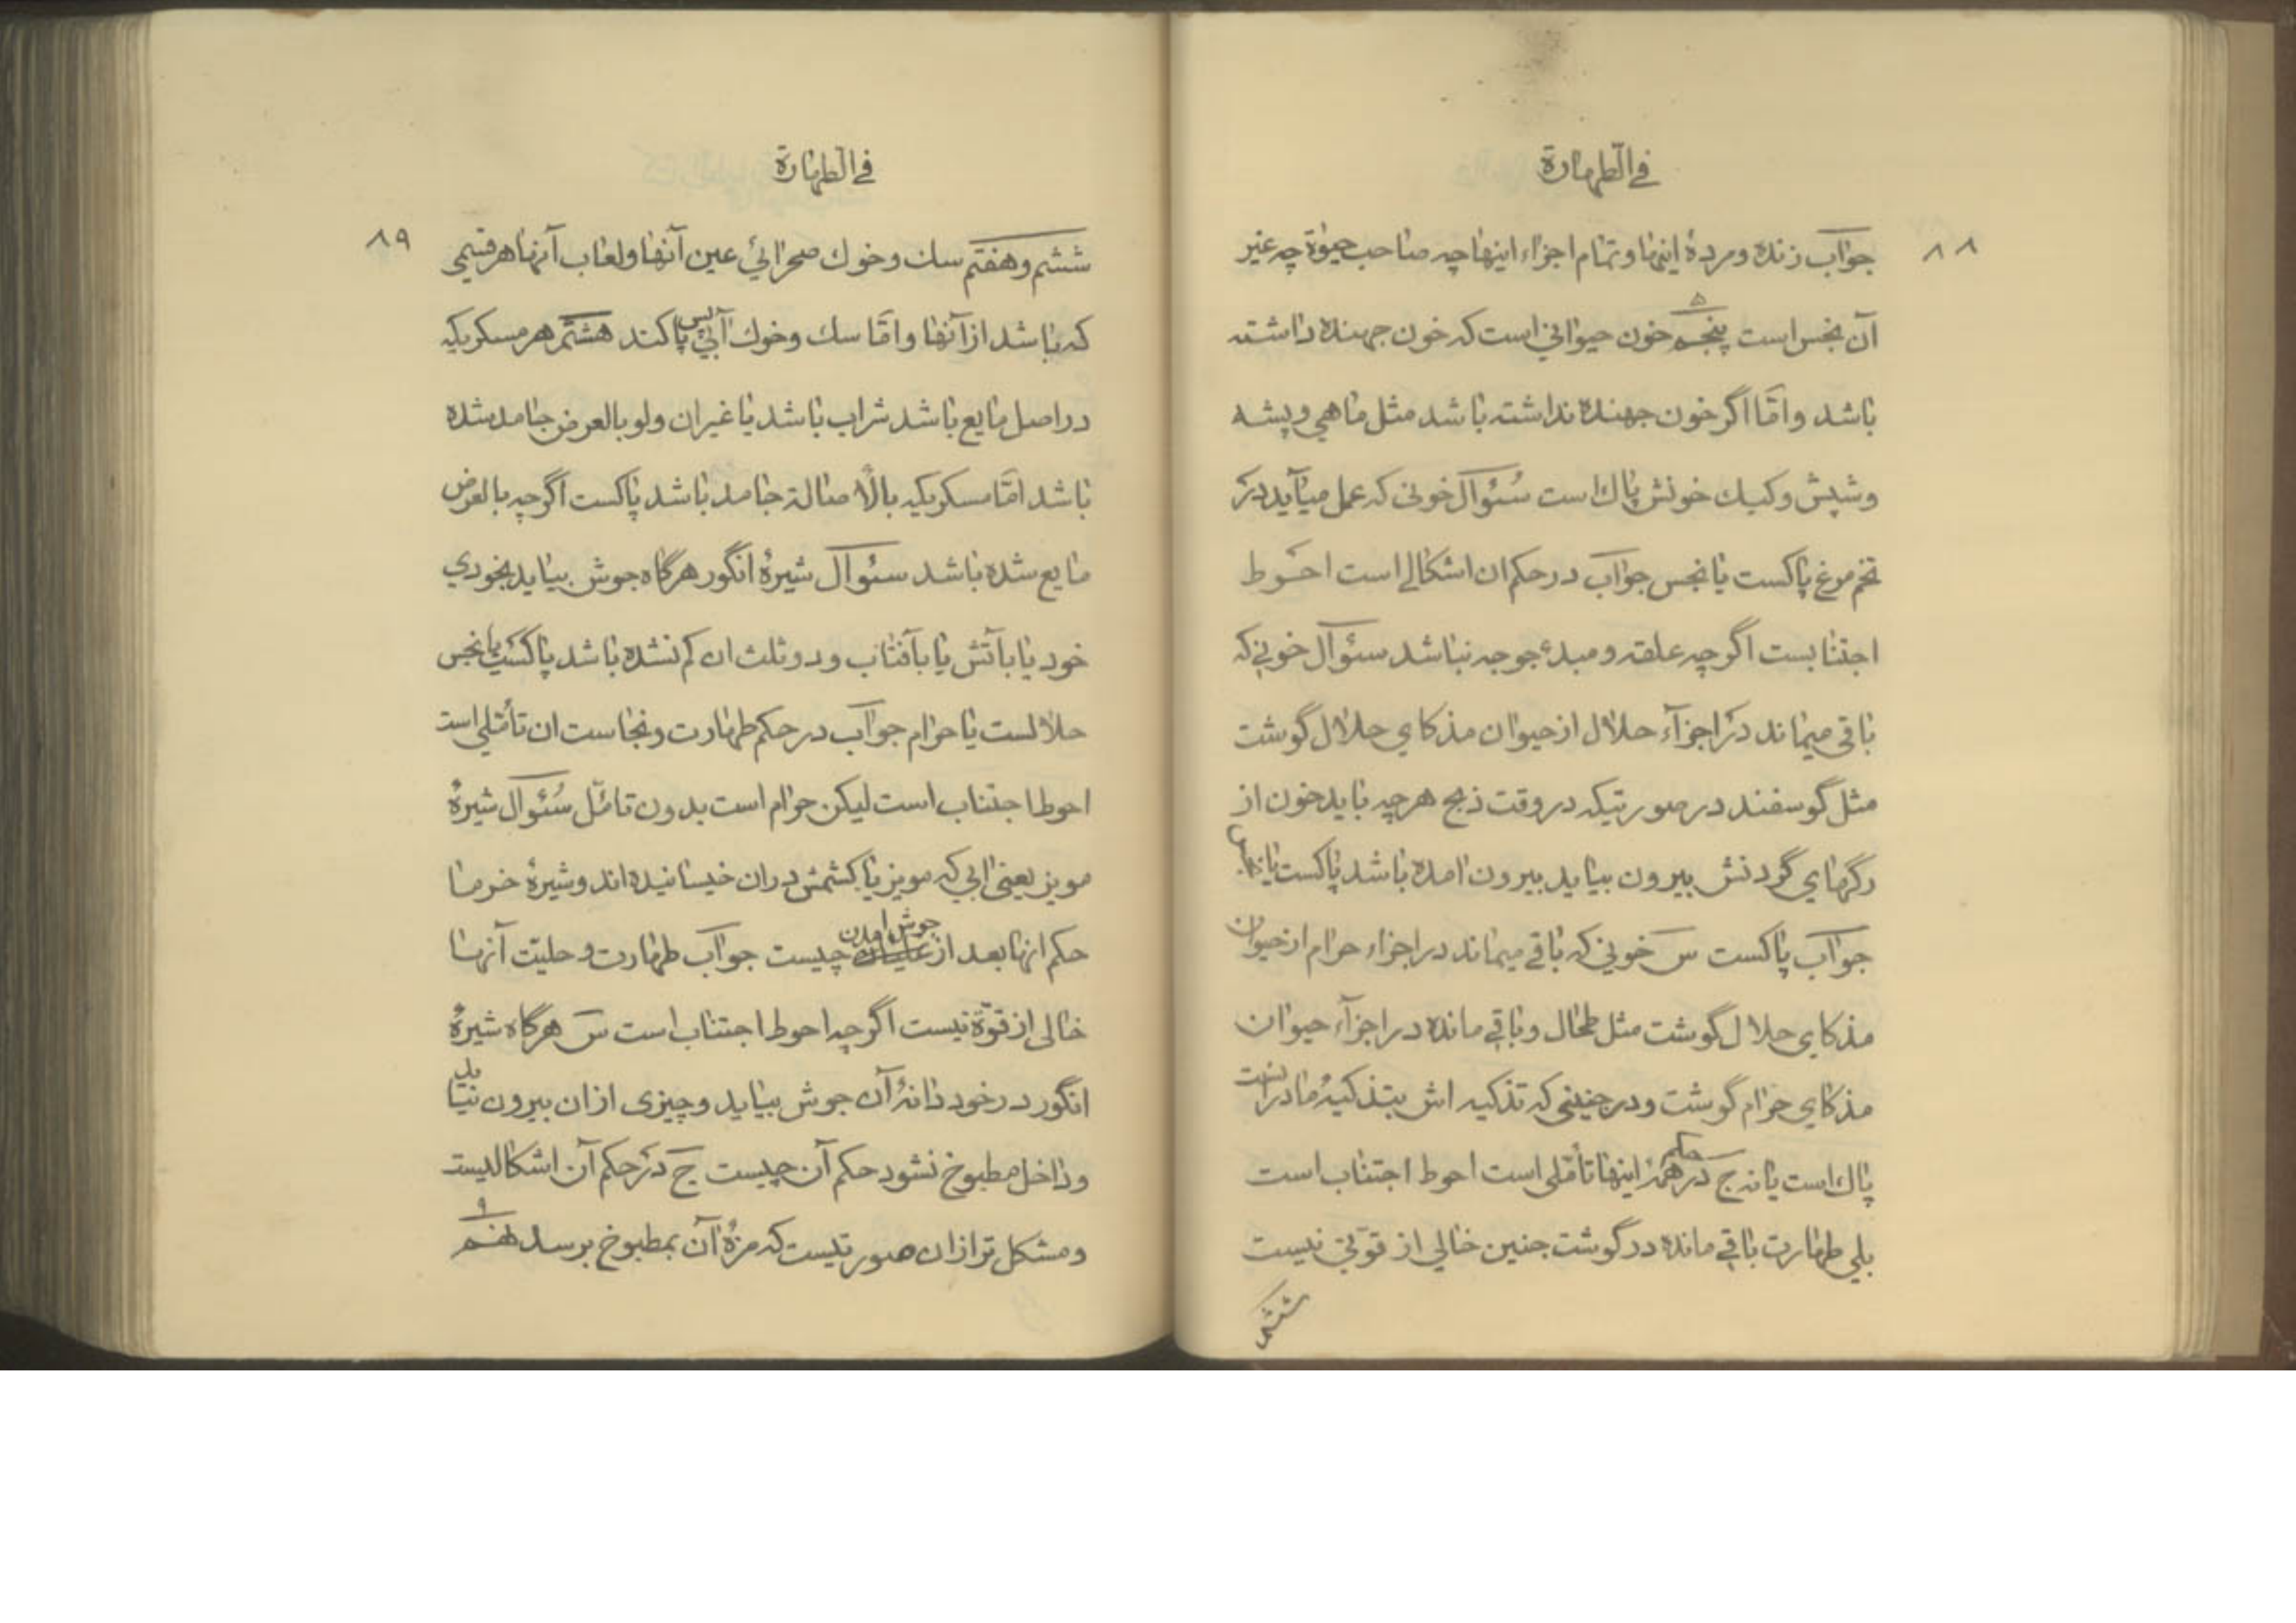 في الطهارة
۸۸
جواب زنده و مردهٔ اینها و تمام اجزاء اینها چه صاحب حیوة چه غیر
آن نجس است پنجم ۵ خون حیوانی است که خون جهنده داشته
باشد و امّا اگر خون جهنده نداشته باشد مثل ماهي و پشه
و شپش و کیك خونش پاك است سُئوال خونی که عمل میآید در
تخم مرغ پاکست یا نجس جواب در حکم ان اشکالے است احوط
اجتنابست اگرچه علقه و مبدء جوجه نباشد سئوال خونی که
باقی میماند در اجزآء حلال از حیوان مذکای حلال گوشت
مثل گوسفند در صورتیکه در وقت ذبح هرچه باید خون از
رگهای گردنش بیرون بیاید بیرون امده باشد پاکست یا نجس
جواب پاکست س خونی که باقے میماند در اجزاء حرام از حیوان
مذکای حلال گوشت مثل طحال و باقے مانده در اجزآء حیوان
مذکای حرام گوشت و در جنینی که تذکیه اش بتذکیهٔ مادر است
پاك است یا نه ج در حکم همهٔ اینها تأمّلی است احوط اجتناب است
بلی طهارت باقے مانده در گوشت جنین خالی از قوّتی نیست
ششم
في الطهارة
۸۹
ششم و هفتم سك و خوك صحرائي عین آنها و لعاب آنها هر قسمی
که باشد از آنها و امّا سك و خوك آبي پس پاکند هشتم هر مسکریکه
در اصل مایع باشد شراب باشد یا غیر ان ولو بالعرض جامد شده
باشد امّا مسکریکه بالأصالة جامد باشد پاکست اگرچه بالعرض
مایع شده باشد سئوال شیرهٔ انگور هرگاه جوش بیاید بخودي
خود یا بآتش یا بآفتاب و دو ثلث ان کم نشده باشد پاکست یا نجس
حلالست یا حرام جواب در حکم طهارت و نجاست ان تأمّلی است
احوط اجتناب است لیکن حرام است بدون تامّل سُئوال شیرهٔ
مویز یعنی ابي که مویز یا کشمش در ان خیسانیده اند و شیرهٔ خرما
حکم انها بعد از جوش امدن چیست جواب طهارت و حلیّت آنها
خالی از قوّة نیست اگرچه احوط اجتناب است س هرگاه شیرهٔ
انگور در خود دانهٔ آن جوش بیاید و چیزی از ان بیرون نیاید
و داخل مطبوخ نشود حکم آن چیست ج در حکم آن اشکالیست
و مشکل تر از ان صورتیست که مزهٔ آن بمطبوخ برسد نهم ۹